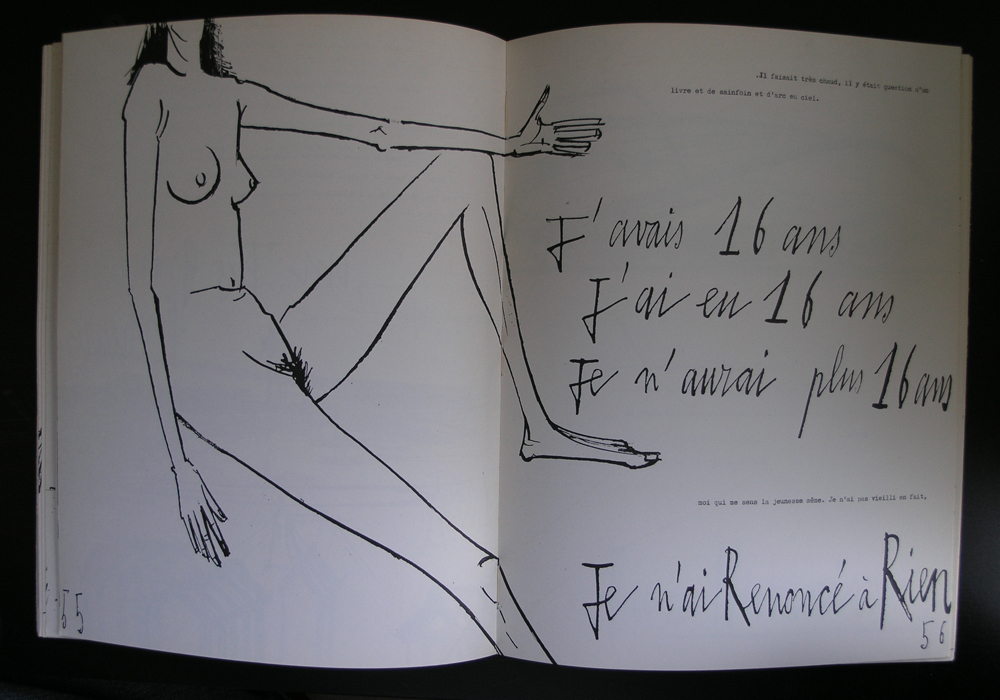 .Il faisait très chaud, il y était question d'un
livre et de sainfoin et d'arc en ciel.
J'avais 16 ans
J'ai eu 16 ans
Je n'aurai plus 16 ans
moi qui me sens la jeunesse même. Je n'ai pas vieilli en fait,
Je n'ai Renoncé à Rien
55
56